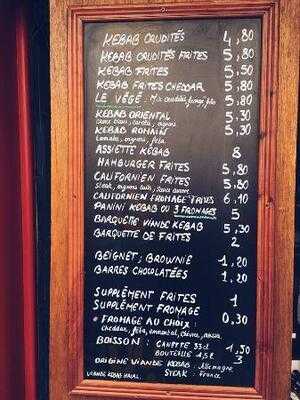 KEBAB CRUDITÉS 4,80
KEBAB CRUDITÉS FRITES 5,80
KEBAB FRITES 5,50
KEBAB FRITES CHEDDAR 5,80
LE VÉGÉ : Mix crudités, fromage, frites 5,80
KEBAB ORIENTAL 5,30
Sauce blanc, carotte, oignons
KEBAB ROMAIN 5,30
Tomates, oignons, féta
ASSIETTE KEBAB 8
HAMBURGER FRITES 5,80
CALIFORNIEN FRITES 5,80
Steak, oignons cuits, sauce
CALIFORNIEN FROMAGE FRITES 6,10
PANINI KEBAB OU 3 FROMAGES 5
BARQUETTE VIANDE KEBAB 5,30
BARQUETTE DE FRITES 2
BEIGNET, BROWNIE 1,20
BARRES CHOCOLATÉES 1,20
SUPPLÉMENT FRITES 1
SUPPLÉMENT FROMAGE 0,30
* FROMAGE AU CHOIX :
cheddar, féta, emmental, chèvre,
BOISSON : CANETTE 33cl 1,50
BOUTEILLE 1,5L 3
ORIGINE VIANDE KEBAB : Allemagne
STEAK : France
VIANDE KEBAB HALAL